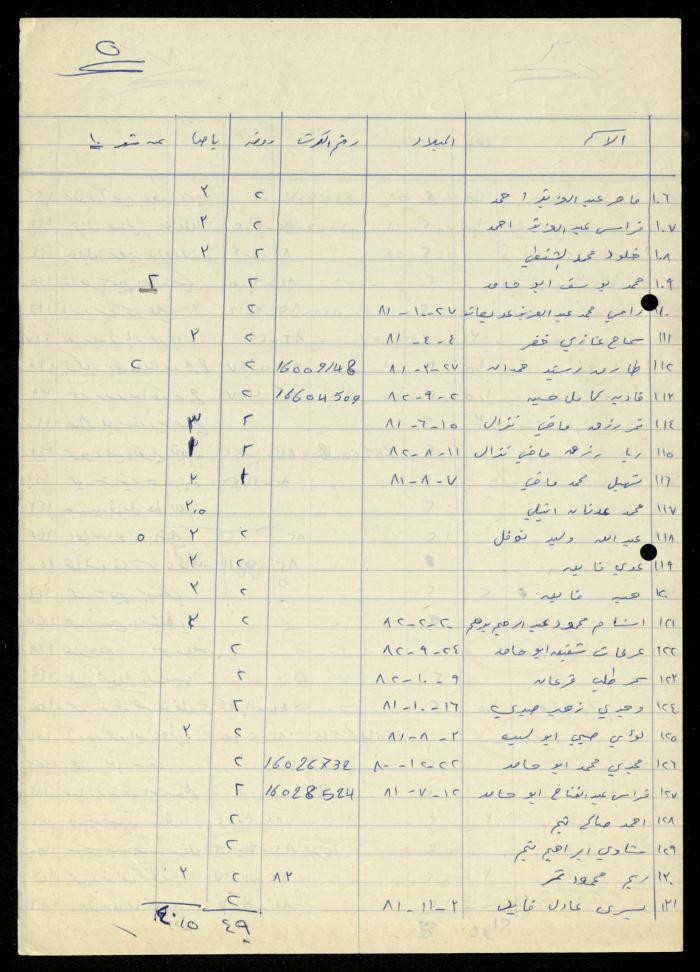 ٥
الاسم الميلاد رقم الكرت روضه باصا عن شهر ١٠
١٠٦ ماهر عبد العزيز احمد ٢ ٣
١٠٧ فراس عبد العزيز احمد ٢ ٣
١٠٨ خلود محمد الشنطي ٢ ٣
١٠٩ محمد يوسف ابو حامد ٢ ٢
١١٠ رامي محمد عبد العزيز ٢٧-١-٨١ ٢
١١١ سماح غازي ٤-٤-٨١ ٢ ٣
١١٢ طارق رشيد حمدان ٢٧-٣-٨١ 16009148 ٢ ٢
١١٣ فاديه كامل حسين ٢-٩-٨٢ 16604509 ٢
١١٤ رزق ماضي نزال ١٥-٦-٨١ ٢ ٣
١١٥ ربا رزق ماضي نزال ١١-٨-٨٢ ٢ ٣
١١٦ محمد ماضي ٧-٨-٨١ ٢ ٢
١١٧ محمد عدنان ٣,٥
١١٨ عبد الله وليد نوفل ٢ ٢ ٥
١١٩ عدي فايق ٢ ٣
١٢٠ هبه فايق ٢ ٣
١٢١ محمود عبد الرحيم ٢-٢-٨٢ ٢ ٣
١٢٢ عرفات شفيق ابو حامد ٢٤-٩-٨٢ ٢
١٢٣ سمر قرعان ٩-١٠-٨٢ ٢
١٢٤ وجدي زهير ١٦-١٠-٨١ ٢
١٢٥ لؤي صبحي ابو ٢-٨-٨١ ٢ ٣
١٢٦ مجدي محمد ابو حامد ٢٢-١٢-٨٠ 16026732 ٢
١٢٧ فراس عبد الفتاح ابو حامد ١٢-٧-٨١ 16028524 ٢
١٢٨ احمد صالح تيم ٢
١٢٩ شادي ابراهيم تيم ٢
١٣٠ ريم محمود ٨٢ ٢ ٣
١٣١ يسرى عادل فايق ٢-١١-٨١ ٢
٤٩ ٤٠,٥